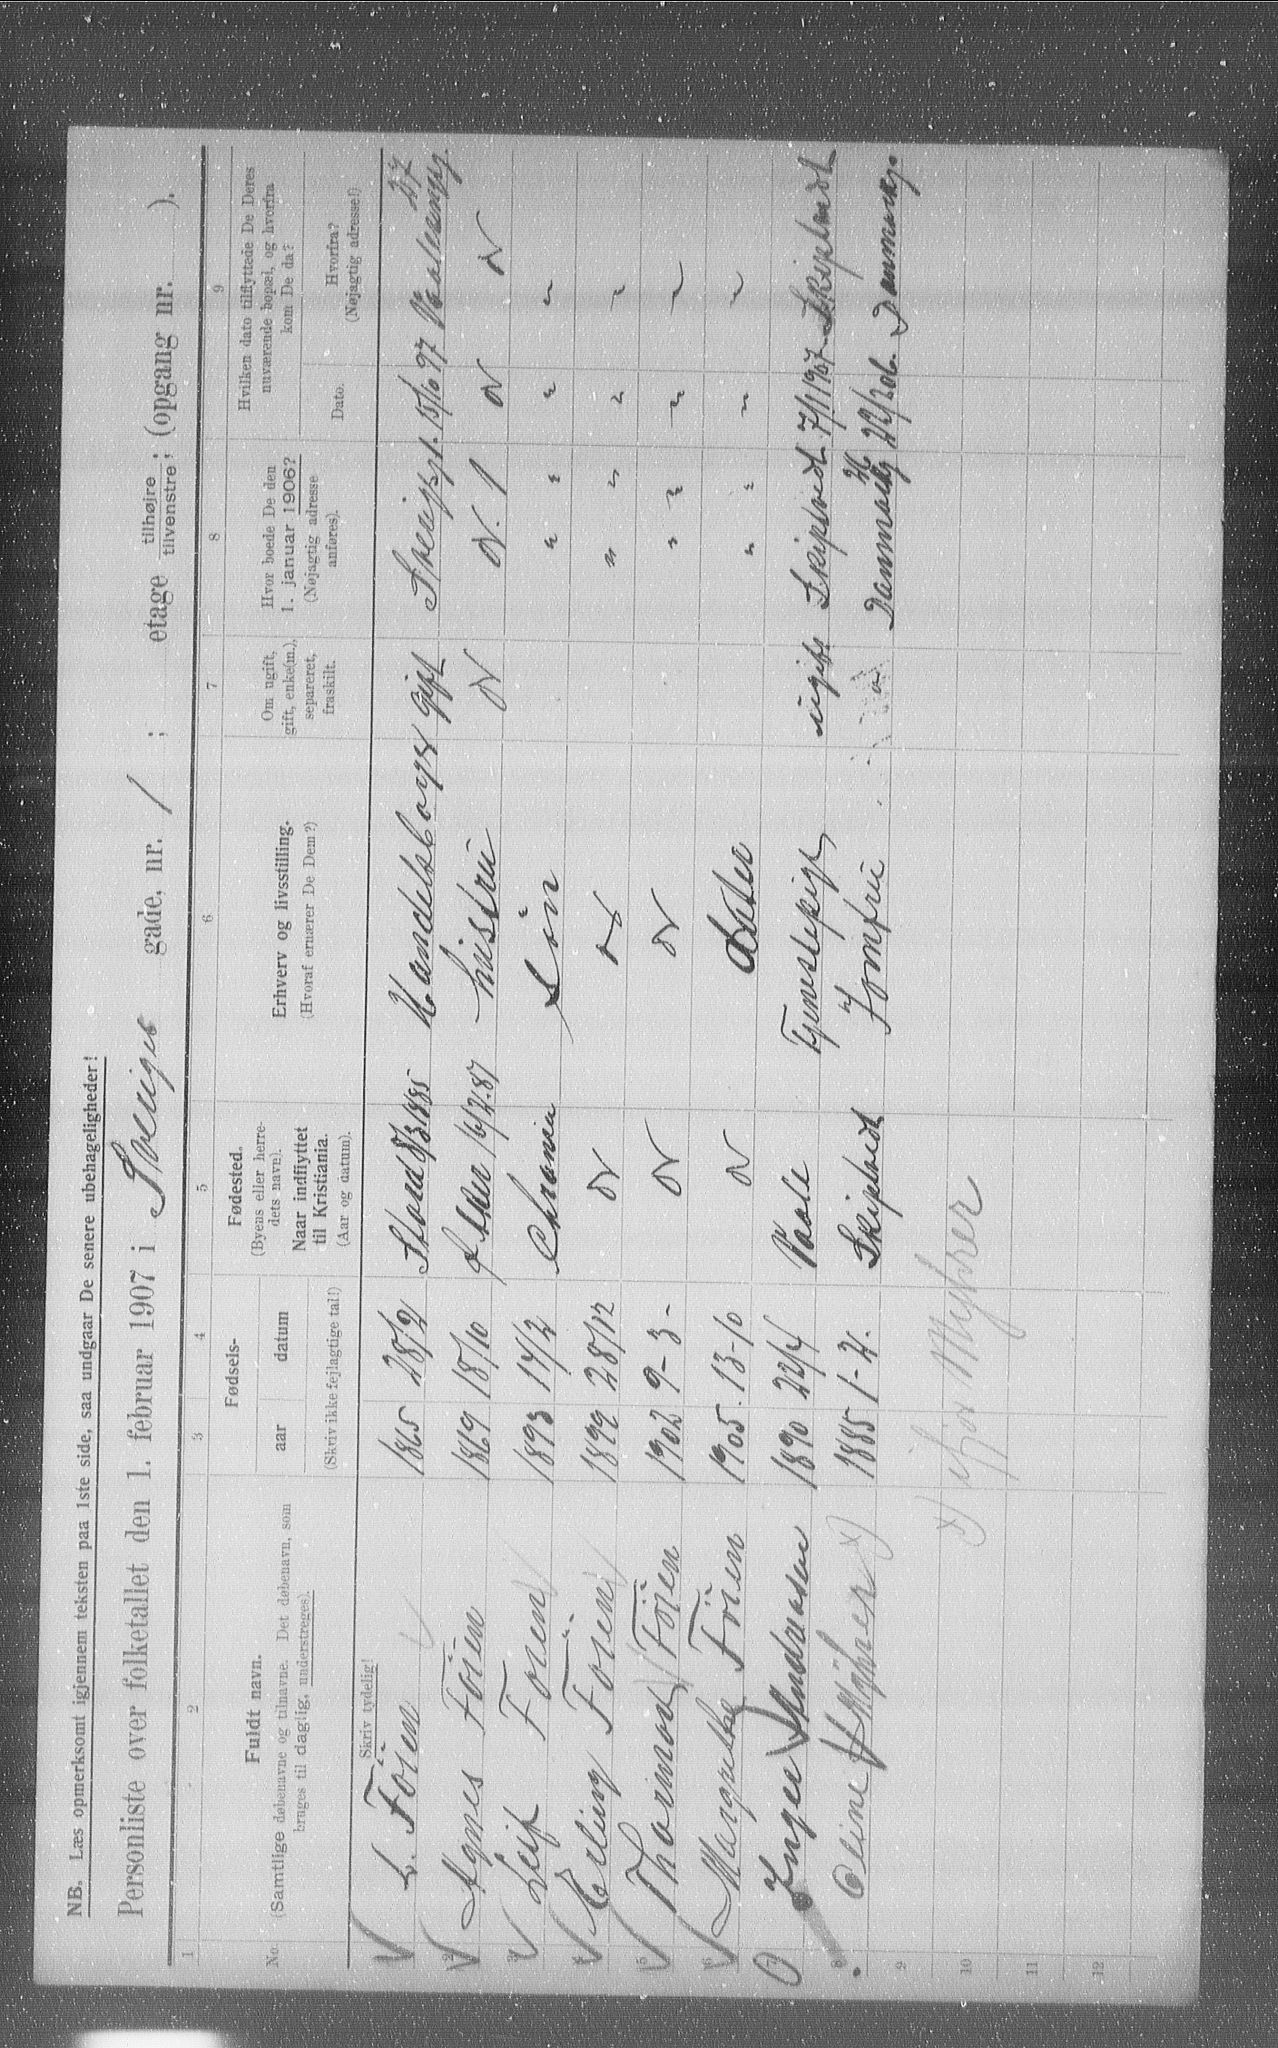 NB. Læs opmerksomt igjennem teksten paa 1ste side, saa undgaar De senere ubehageligheder!
Personliste over folketallet den 1. februar 1907 i Sveriges gade, nr. 1 ; etage tilhøjre tilvenstre; (opgang nr. ).
1 2 3 4 5 6 7 8 9
No. Fuldt navn. (Samtlige døbenavne og tilnavne. Det døbenavn, som bruges til daglig, understreges). Fødsels- aar datum (Skriv ikke fejlagtige tal!) Fødested. (Byens eller herredets navn). Naar indflyttet til Kristiania. (Aar og datum). Erhverv og livsstilling. (Hvoraf ernærer De Dem?) Om ugift, gift, enke(m.), separeret, fraskilt. Hvor boede De den 1. januar 1906? (Nøjagtig adresse anføres). Hvilken dato tilflyttede De Deres nuværende bopæl, og hvorfra kom De da? Dato. Hvorfra? (Nøjagtig adresse!)
Skriv tydelig!
L. Föien 1865 28/2 Stord 8/3 1885 Gift 15/10 97 27
2 Agnes Föien 1869 18/10 16/2.87 hustru Do Do. 1 Do Do
3 Leif Foien 1893 14/2 Chrania Sön " " " "
4 Erling Foien 1899 28/12 Do Do " " " "
5 Thormod Föien 1902 9-3- Do Do " " " "
6 Margrethe Föien 1905. 13-10 Do dater " " " "
Inger Andreasen 1890 22/4 Vaale Tjenestepige ugift Skiptvedt 7/1 1907 Skiptvedt
8 Oline Myhrer x) 1885 1-2. Skiptvedt Jomfru Danmark 22/2 06. Danmark
9
10 x) Myhrer
11
12